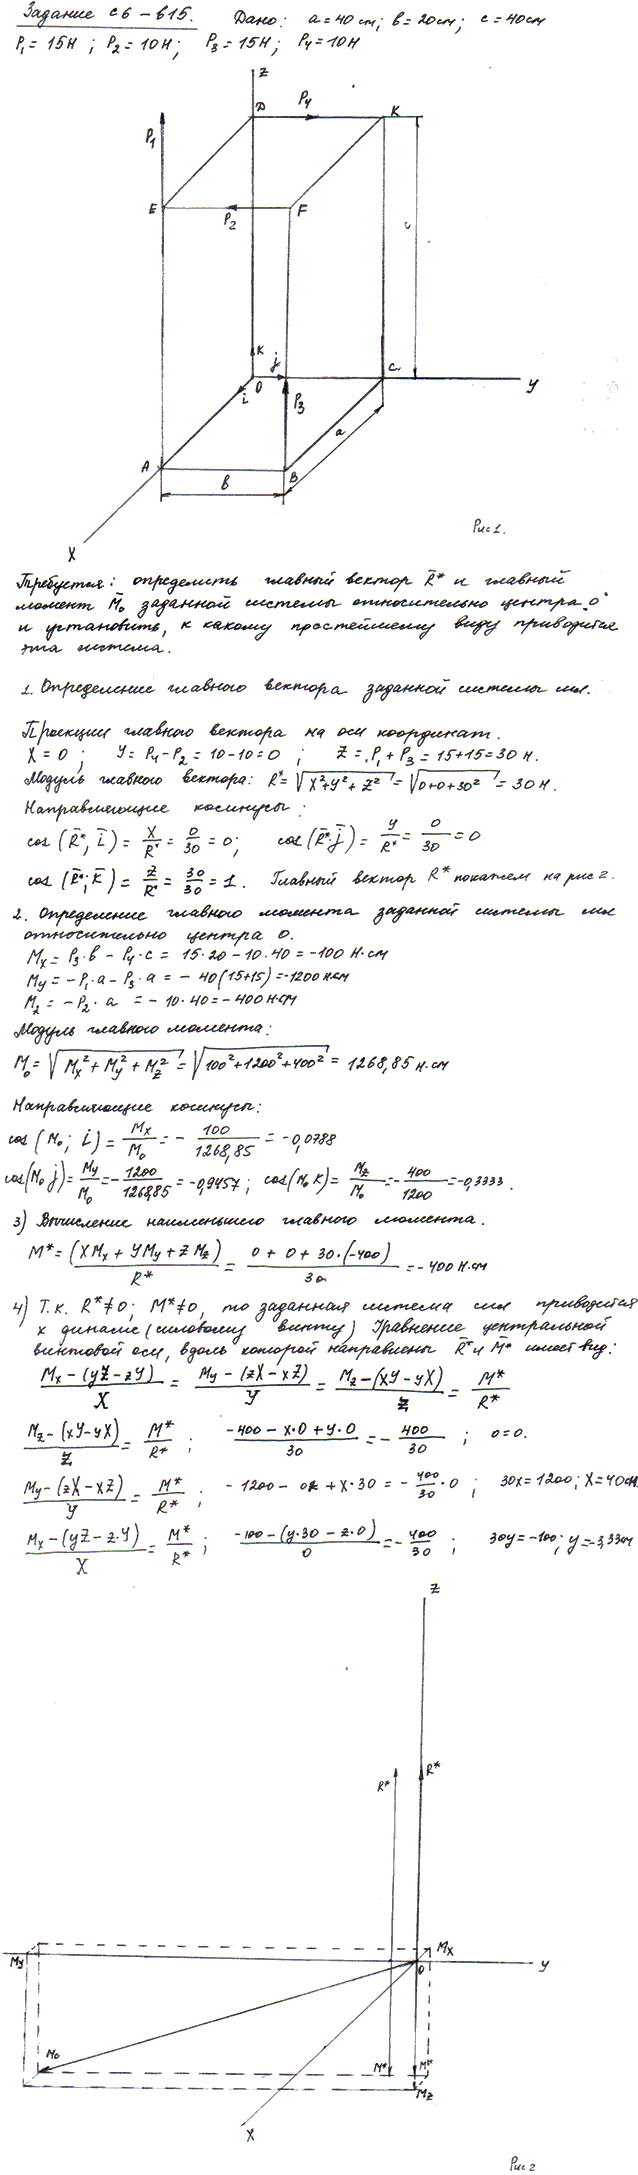 Задание С6 – в15. Дано: a = 40 см; в = 20 см; c = 40 см
P₁ = 15 Н ; P₂ = 10 Н ; P₃ = 15 Н ; P₄ = 10 Н
Z
D P₄ K
P₁
E P₂ F
c
K
j
O C Y
i P₃
a
A B
в
X
Рис 1.
Требуется: определить главный вектор R̄* и главный
момент M̄₀ заданной системы относительно центра „О"
и установить, к какому простейшему виду приводится
эта система.
1. Определение главного вектора заданной системы сил.
Проекции главного вектора на оси координат.
X = 0 ; Y = P₄ – P₂ = 10 – 10 = 0 ; Z = P₁ + P₃ = 15 + 15 = 30 Н.
Модуль главного вектора: R* = √(X² + Y² + Z²) = √(0 + 0 + 30²) = 30 Н.
Направляющие косинусы:
cos (R̄*; ī) = X/R* = 0/30 = 0; cos (R̄*; j̄) = Y/R* = 0/30 = 0
cos (R̄*; K̄) = Z/R* = 30/30 = 1. Главный вектор R* покажем на рис 2.
2. Определение главного момента заданной системы сил
относительно центра О.
Mx = P₃·в – P₄·c = 15·20 – 10·40 = –100 Н·см
My = –P₁·a – P₃·a = –40(15+15) = –1200 Н·см
Mz = –P₂·a = –10·40 = –400 Н·см
Модуль главного момента:
M₀ = √(Mx² + My² + Mz²) = √(100² + 1200² + 400²) = 1268,85 Н·см
Направляющие косинусы:
cos (M₀; i) = Mx/M₀ = – 100/1268,85 = –0,0788
cos(M₀ j) = My/M₀ = –1200/1268,85 = –0,9457 ; cos(M₀ K) = Mz/M₀ = –400/1200 = –0,3333.
3) Вычисление наименьшего главного момента.
M* = (XMx + YMy + ZMz)/R* = (0 + 0 + 30·(–400))/30 = –400 Н·см
4) Т.к. R* ≠ 0; M* ≠ 0, то заданная система сил приводится
к динаме (силовому винту) Уравнение центральной
винтовой оси, вдоль которой направлены R̄* и M̄* имеет вид:
(Mx – (yZ – zY))/X = (My – (zX – xZ))/Y = (Mz – (xY – yX))/Z = M*/R*
(Mz – (xY – yX))/Z = M*/R* ; (–400 – x·0 + y·0)/30 = – 400/30 ; 0=0.
(My – (zX – xZ))/Y = M*/R* ; –1200 – 0z + x·30 = – 400/30 ·0 ; 30x = 1200; x = 40 см.
(Mx – (yZ – z·Y))/X = M*/R* ; (–100 – (y·30 – z·0))/0 = –400/30 ; 30y = –100; y = –3,33 см
Z
R* R*
Mx
My O Y
M₀ M* M*
Mz
X
Рис 2